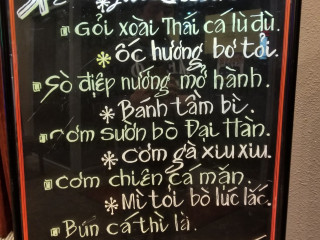 Gỏi xoài Thái cá lù đù.
ốc hương bơ tỏi.
Sò điệp nướng mỡ hành.
Bánh tằm bì.
cơm sườn bò Đại Hàn.
cơm gà xiu xiu.
cơm chiên cá mặn.
Mì tỏi bò lúc lắc.
Bún cá thì là.